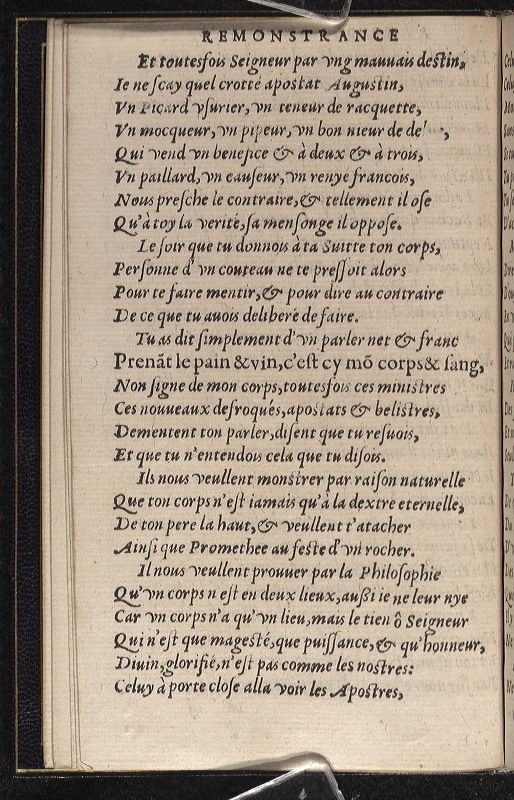 REMONSTRANCE
Et toutesfois Seigneur par vng mauuais destin,
Ie ne sçay quel crotté apostat Augustin,
Vn Picard vsurier, vn teneur de racquette,
Vn mocqueur, vn pipeur, vn bon nieur de
Qui vend vn benefice & à deux & à trois,
Vn paillard, vn causeur, vn renyé francois,
Nous presche le contraire, & tellement il ose
Qu'à toy la verité, sa mensonge il oppose.
Le soir que tu donnois à ta Suitte ton corps,
Personne d'vn couteau ne te pressoit alors
Pour te faire mentir, & pour dire au contraire
De ce que tu auois deliberé de faire.
Tu as dit simplement d'vn parler net & franc
Prenãt le pain & vin, c'est cy mõ corps & sang,
Non signe de mon corps, toutesfois ces ministres
Ces nouueaux defroqués, apostats & belistres,
Dementent ton parler, disent que tu resuois,
Et que tu n'entendois cela que tu disois.
Ils nous veullent monstrer par raison naturelle
Que ton corps n'est iamais qu'à la dextre eternelle,
De ton pere la haut, & veullent t'atacher
Ainsi que Promethee au feste d'vn rocher.
Il nous veullent prouuer par la Philosophie
Qu'vn corps n est en deux lieux, aussi ie ne leur nye
Car vn corps n'a qu'vn lieu, mais le tien ô Seigneur
Qui n'est que magesté, que puissance, & qu'honneur,
Diuin, glorifié, n'est pas comme les nostres:
Celuy à porte close alla voir les Apostres,